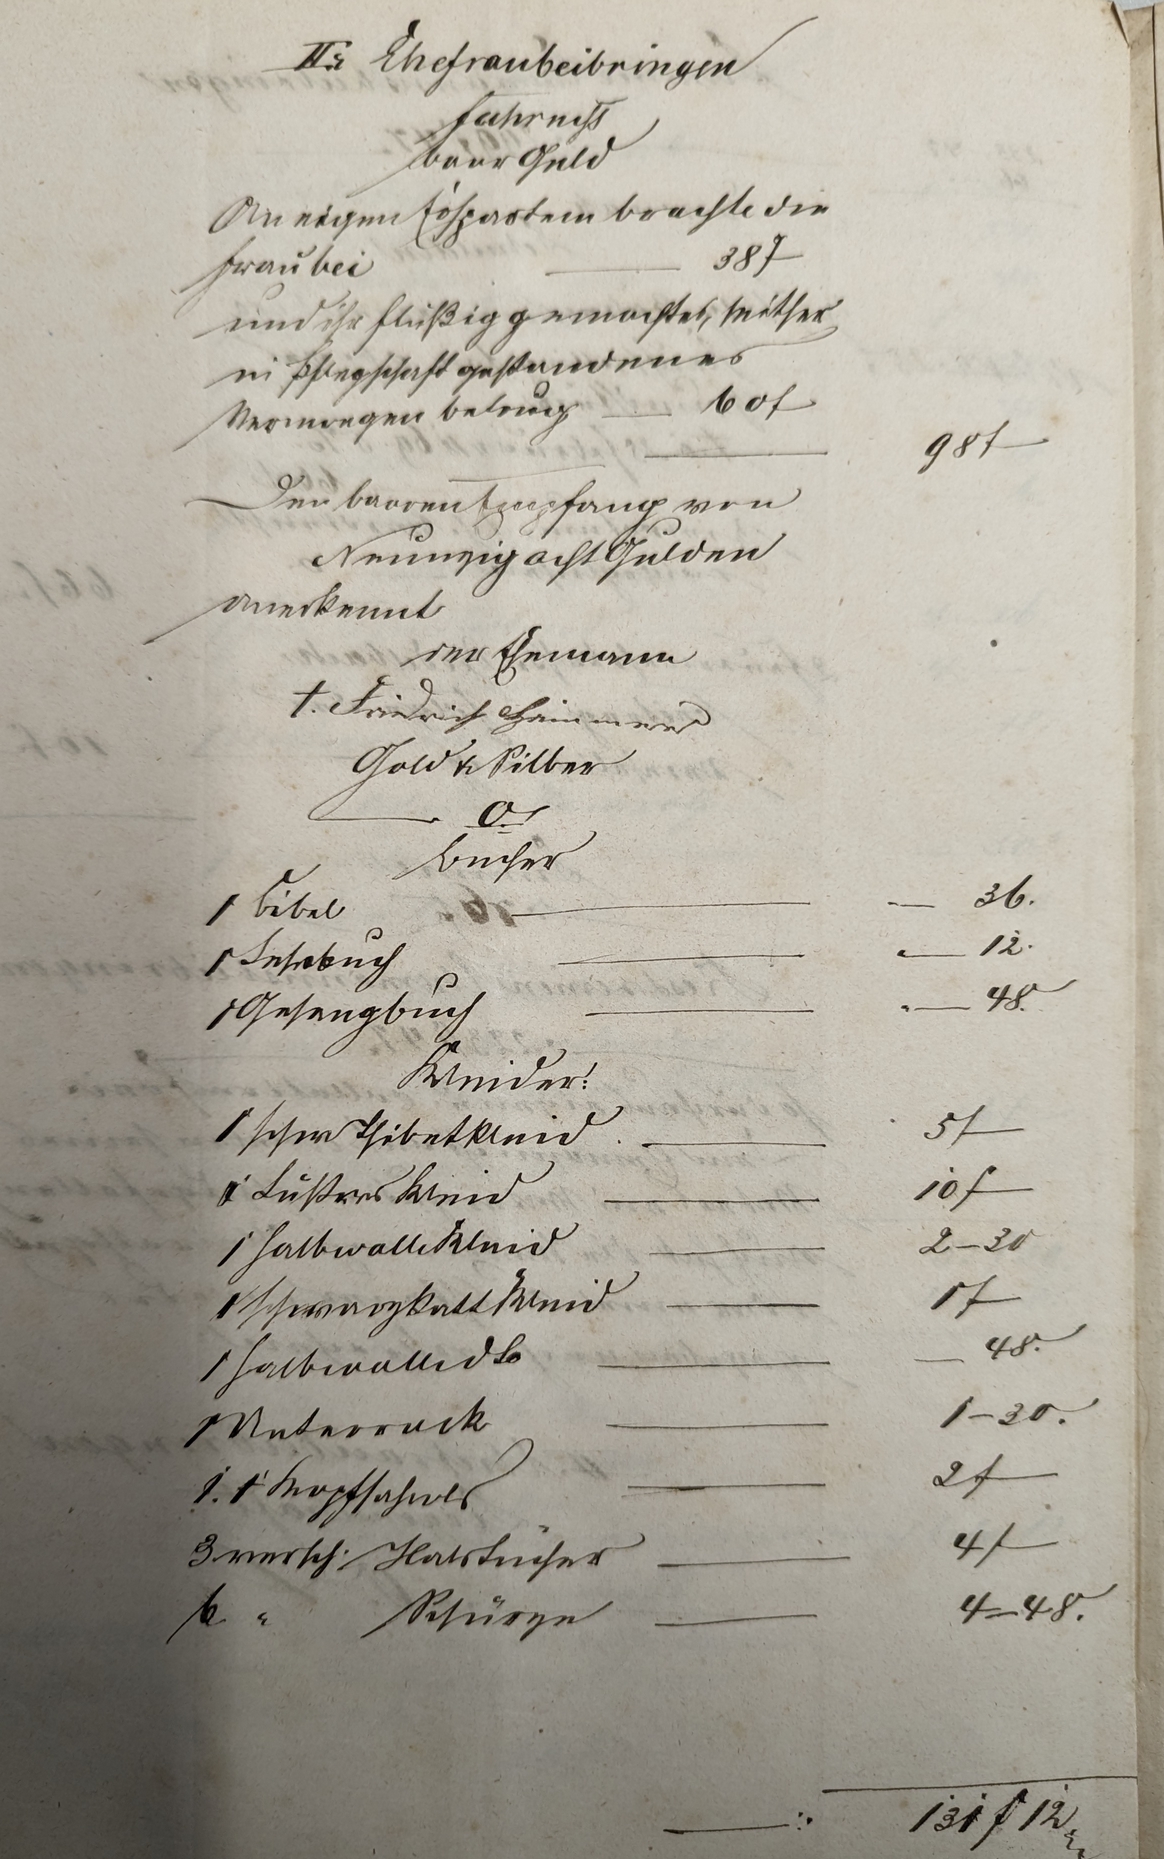 II: Ehefraubeibringen
Fahrniß
baar Geld
An eigen Erspartem brachte die
Frau bei — 38 f
und ihr flüßig gemachtes, seither
in Pflegschaft gestandenes
Vermoegen betrug — 60 f
98 f
Den baaren Empfang von
Neunzig acht Gulden
anerkennt
der Ehemann
†. Friedrich
Gold & Silber
— O. —
Bücher
1 Bibel — — 36.
1 Lehrbuch — „ — 12.
1 Gesangbuch — „ — 48.
Kleider:
1 schw Thibetkleid — 5 f
1 Lüstres Kleid — 10 f
1 halbwolle Kleid — 2 – 30
1 schwarz Katt Kleid — 1 f
1 halbwolle do — — 48.
1 Unterrock — 1 – 30.
1. 1 Kopfschawls — 2 f
3 versch: Halstücher — 4 f
6 „ Schürze — 4 – 48.
— : 131 f 12